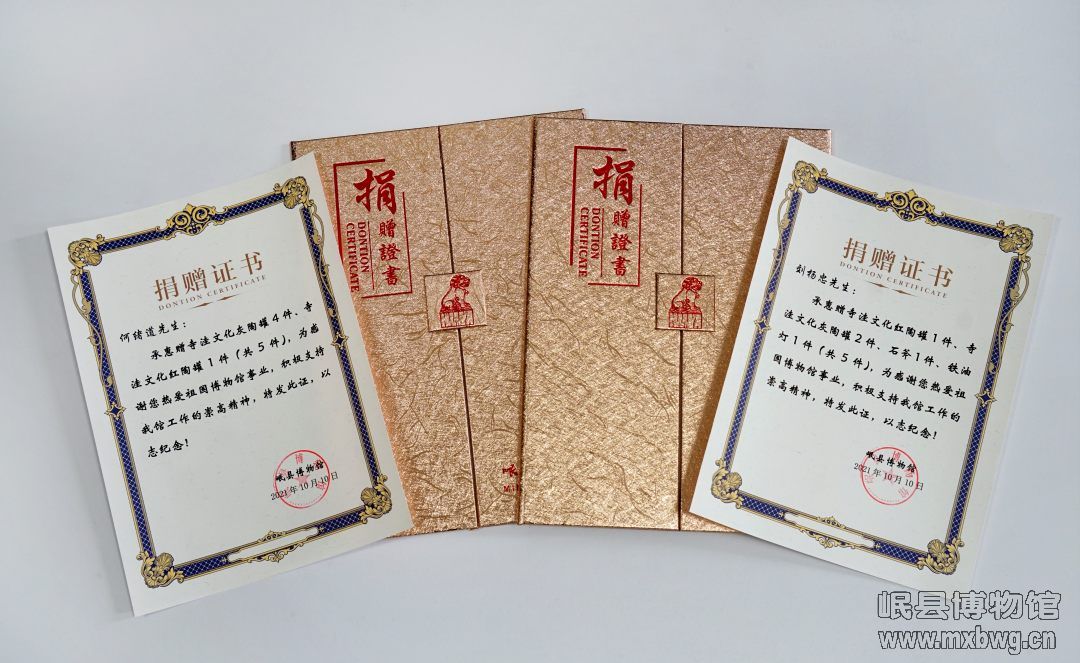 捐赠证书
DONTION CERTIFICATE
何绪道先生：
承惠赠寺洼文化灰陶罐4件、寺
洼文化红陶罐1件（共5件），为感
谢您热爱祖国博物馆事业，积极支持
我馆工作的崇高精神，特发此证，以
志纪念！
岷县博物馆
2021年10月10日
捐
贈證書
DONTION
CERTIFICATE
捐
贈證書
DONTION
CERTIFICATE
捐赠证书
DONTION CERTIFICATE
刘杨忠先生：
承惠赠寺洼文化红陶罐1件、寺
洼文化灰陶罐2件、石斧1件、铁油
灯1件（共5件），为感谢您热爱祖
国博物馆事业，积极支持我馆工作的
崇高精神，特发此证，以志纪念！
岷县博物馆
2021年10月10日
岷县博物馆
www.mxbwg.cn